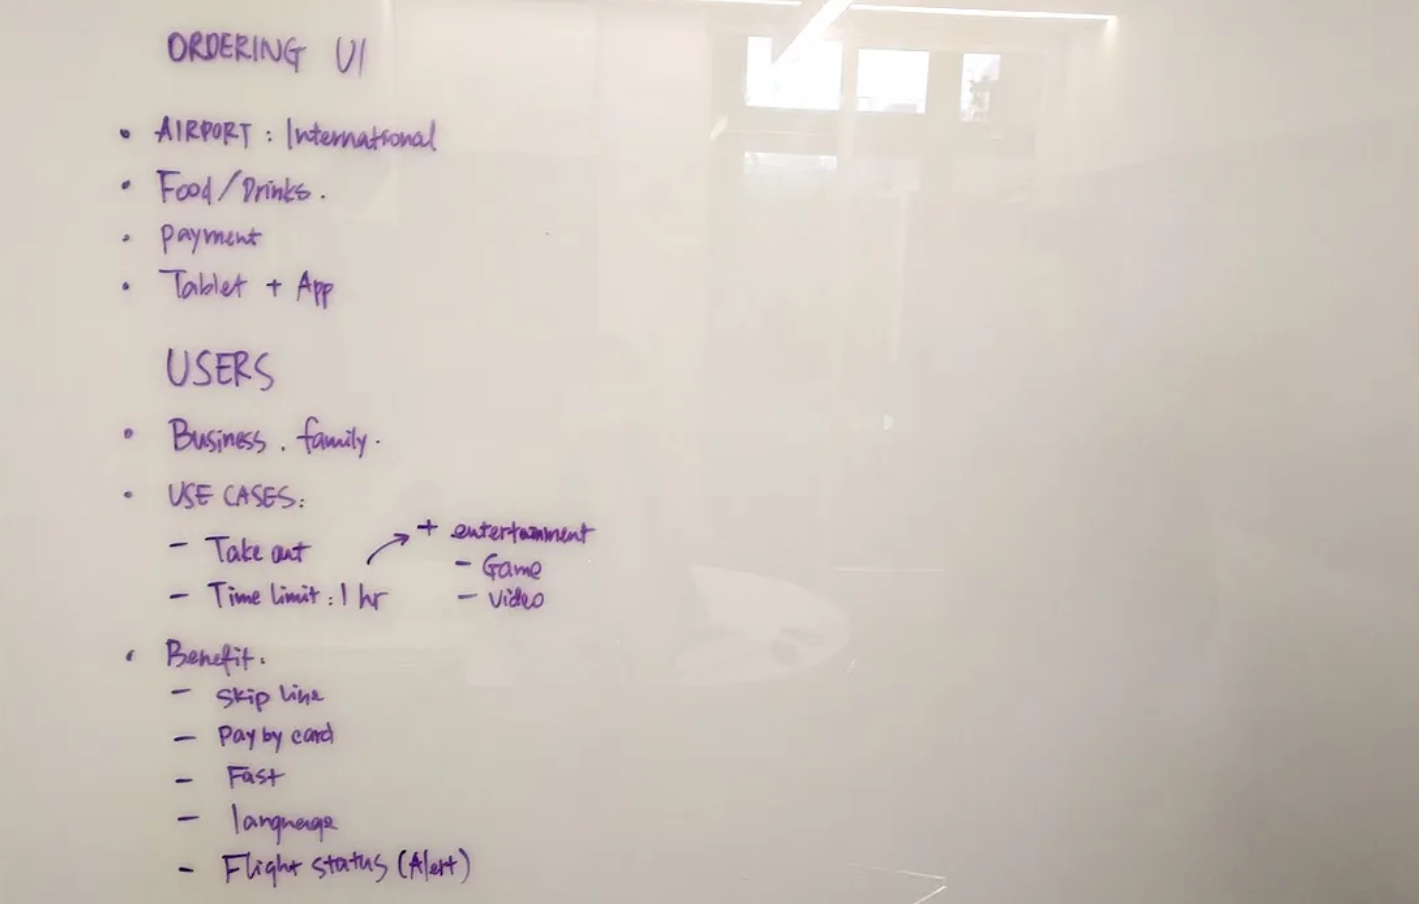 ORDERING UI
• AIRPORT : International
• Food/Drinks.
• payment
• Tablet + App
USERS
• Business. family.
• USE CASES:
- Take out
- Time limit: 1 hr
+ entertainment
- Game
- video
• Benefit:
- skip line
- pay by card
- Fast
- language
- Flight status (Alert)